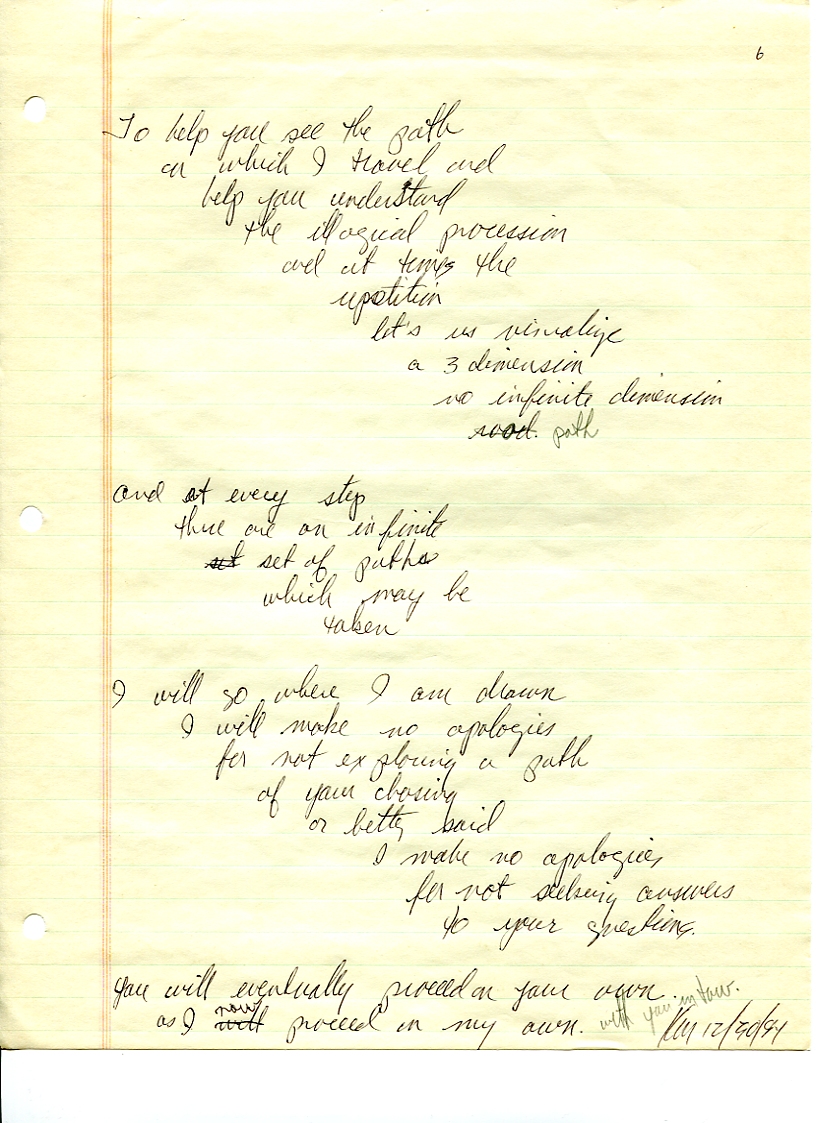 6
To help you see the path
on which I travel and
help you understand
the illogical procession
and at times the
repetition
let's us visualize
a 3 dimension
no infinite dimension
road. path
and at every step
there are an infinite
set set of paths
which may be
taken
I will go where I am drawn
I will make no apologies
for not exploring a path
of your chosing
or better said
I make no apologies
for not seeking answers
to your questions.
you will eventually proceed on your own.
as I will now proceed on my own. with you in tow.
12/30/94